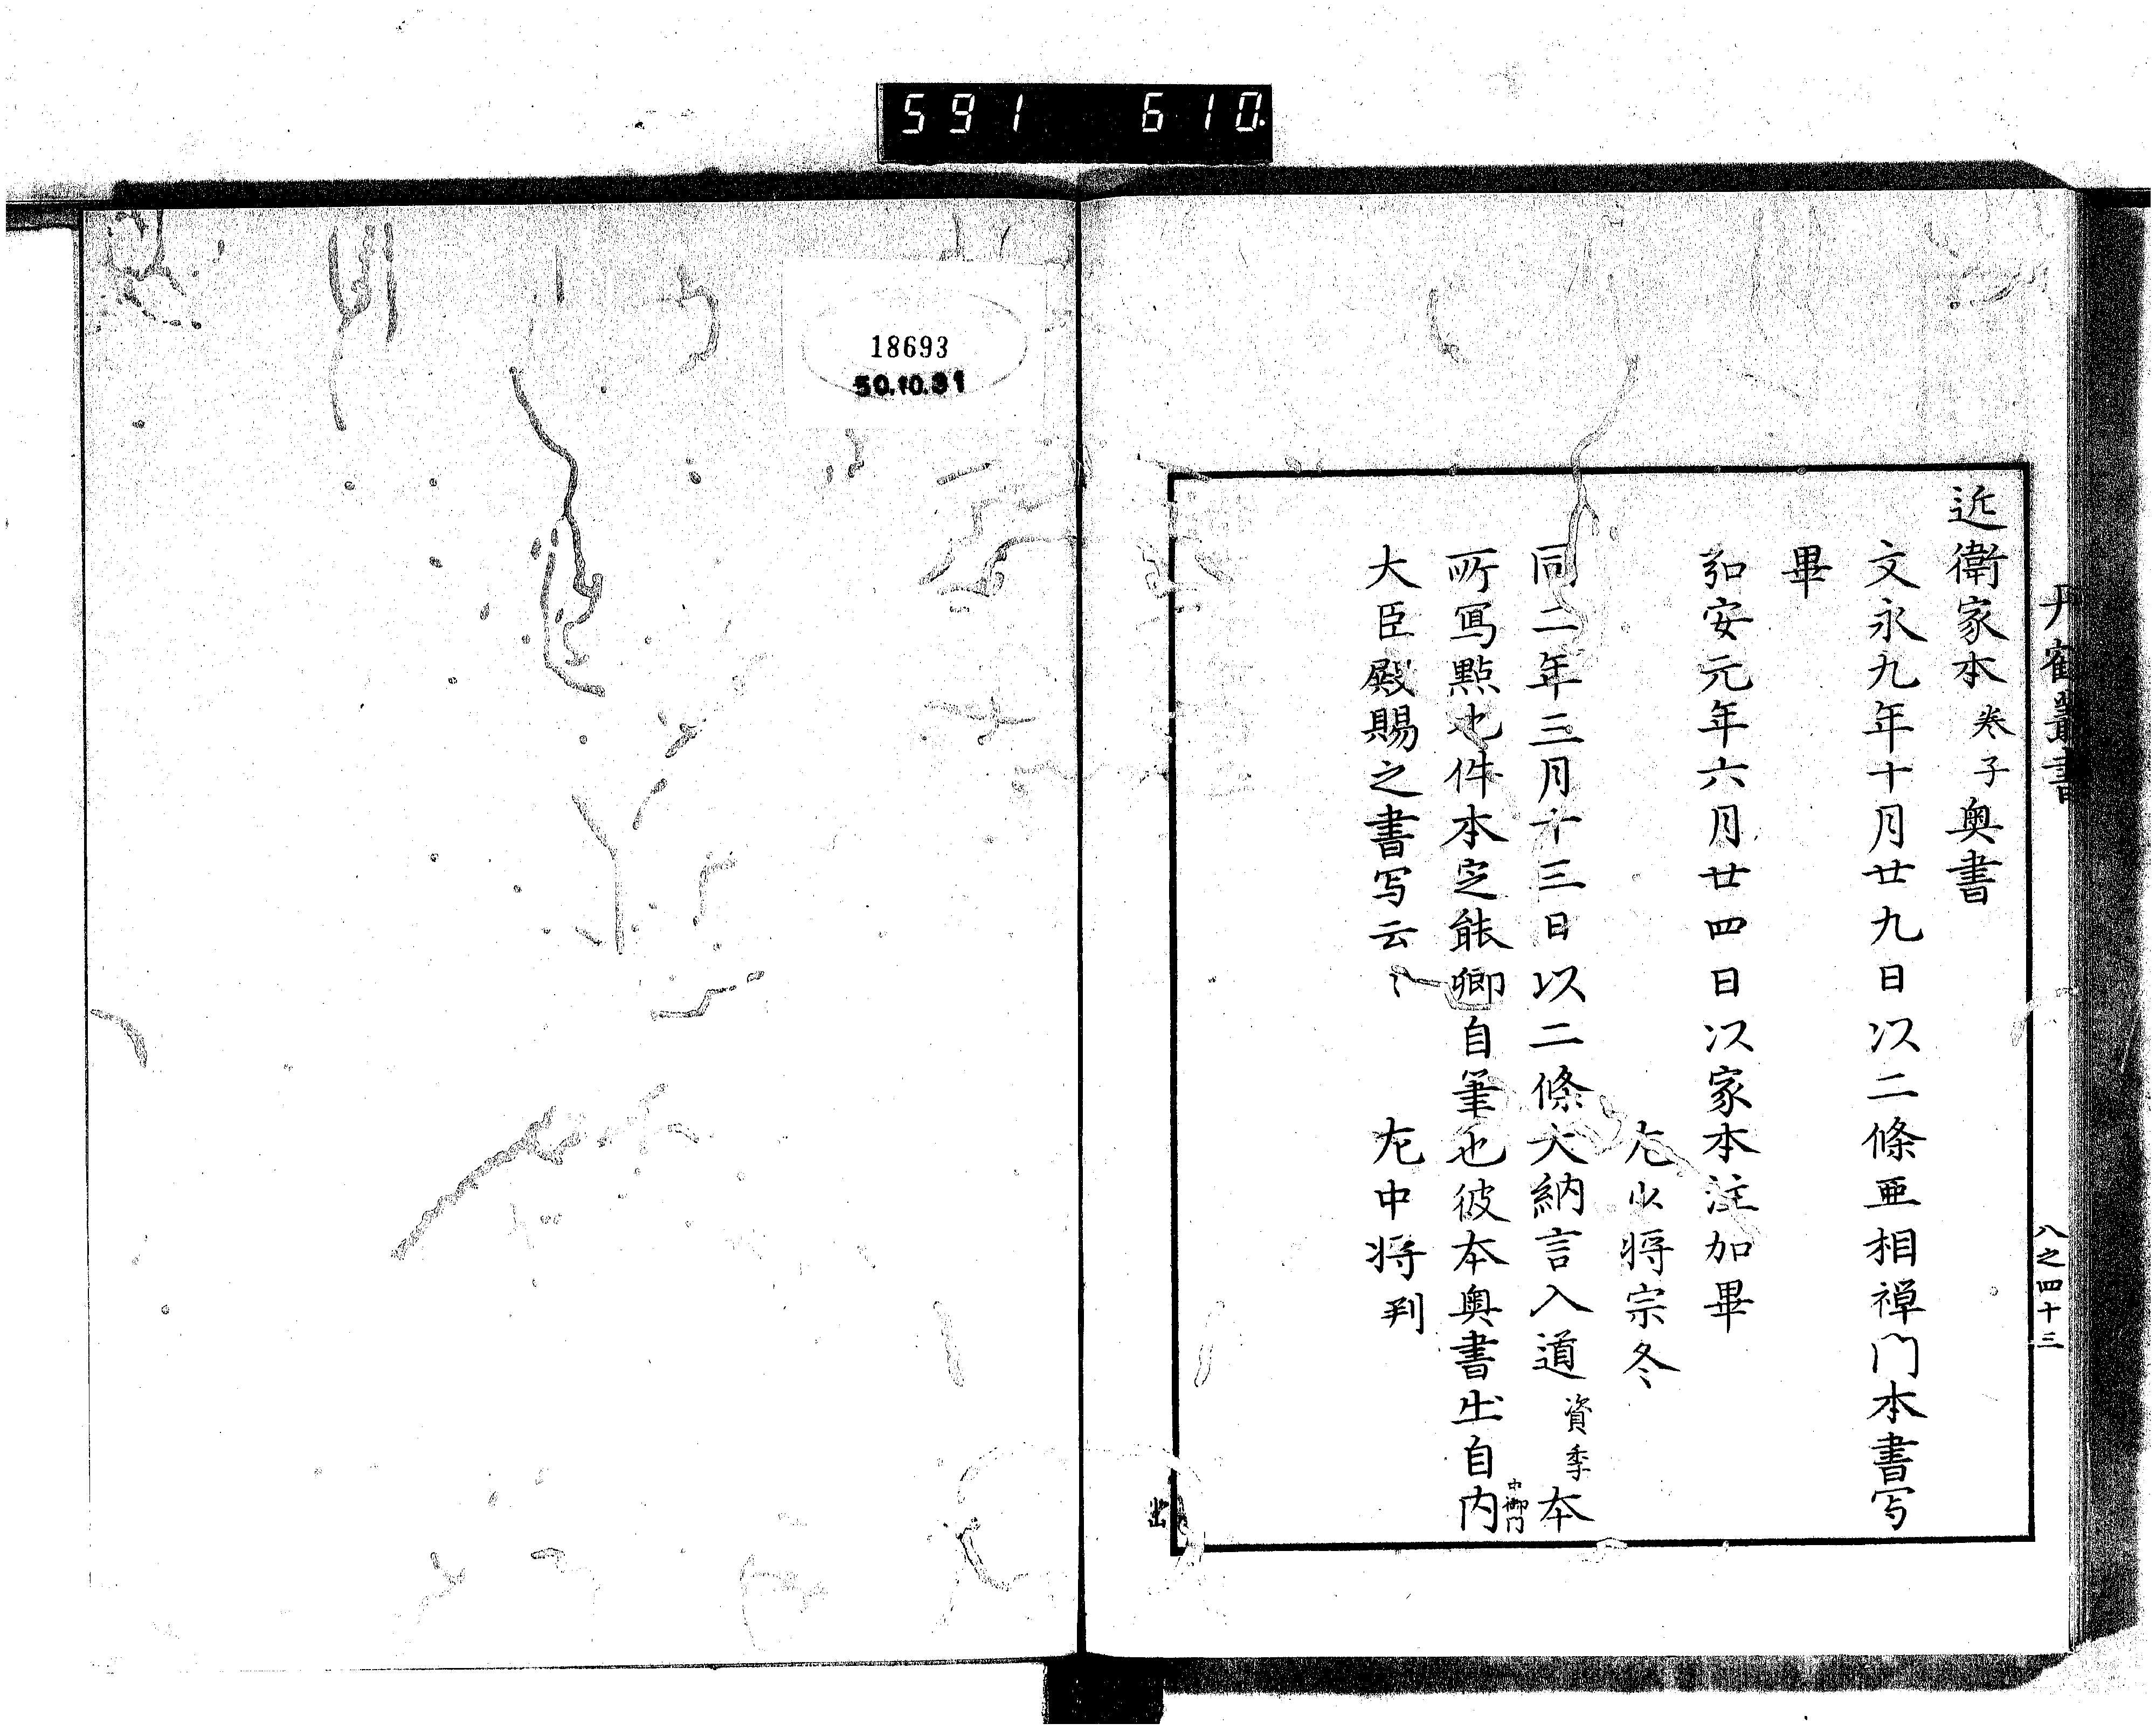 591 610
18693
50.10.31
丹鶴叢書
八之四十三
近衛家本巻子奥書
文永九年十月廿九日以二條亜相禅门本書写
畢
弘安元年六月廿四日以家本注加畢
左少将宗冬
同二年三月十三日以二條大納言入道資季本
所寫點也件本定能卿自筆也彼本奥書出自内
中御门
大臣殿賜之書写云〻
左中将判